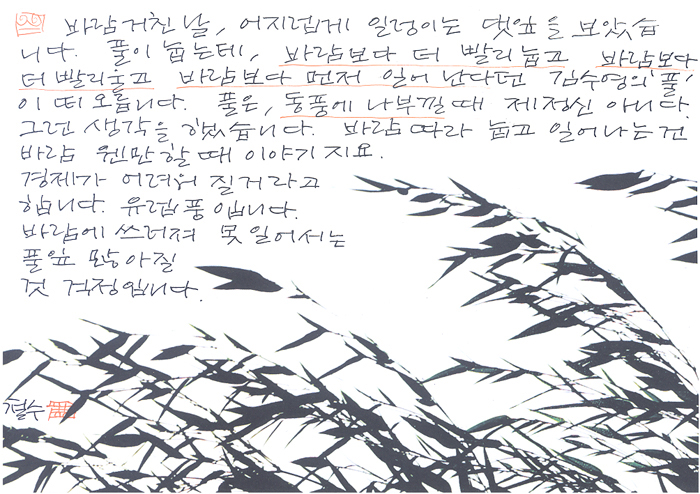 바람 거친 날, 어지럽게 일렁이는 댓잎을 보았습
니다. 풀이 눕는데, 바람보다 더 빨리 눕고 바람보다
더 빨리 울고 바람보다 먼저 일어 난다던 김수영의 '풀'
이 떠 오릅니다. 풀은, 동풍에 나부낄 때 제정신 아니다.
그런 생각을 했습니다. 바람 따라 눕고 일어나는 건
바람 웬만할 때 이야기 지요.
경제가 어려워 질거라고
합니다. 유럽 풍 입니다.
바람에 쓰러져 못 일어서는
풀잎 많아질
것 걱정입니다.
철수